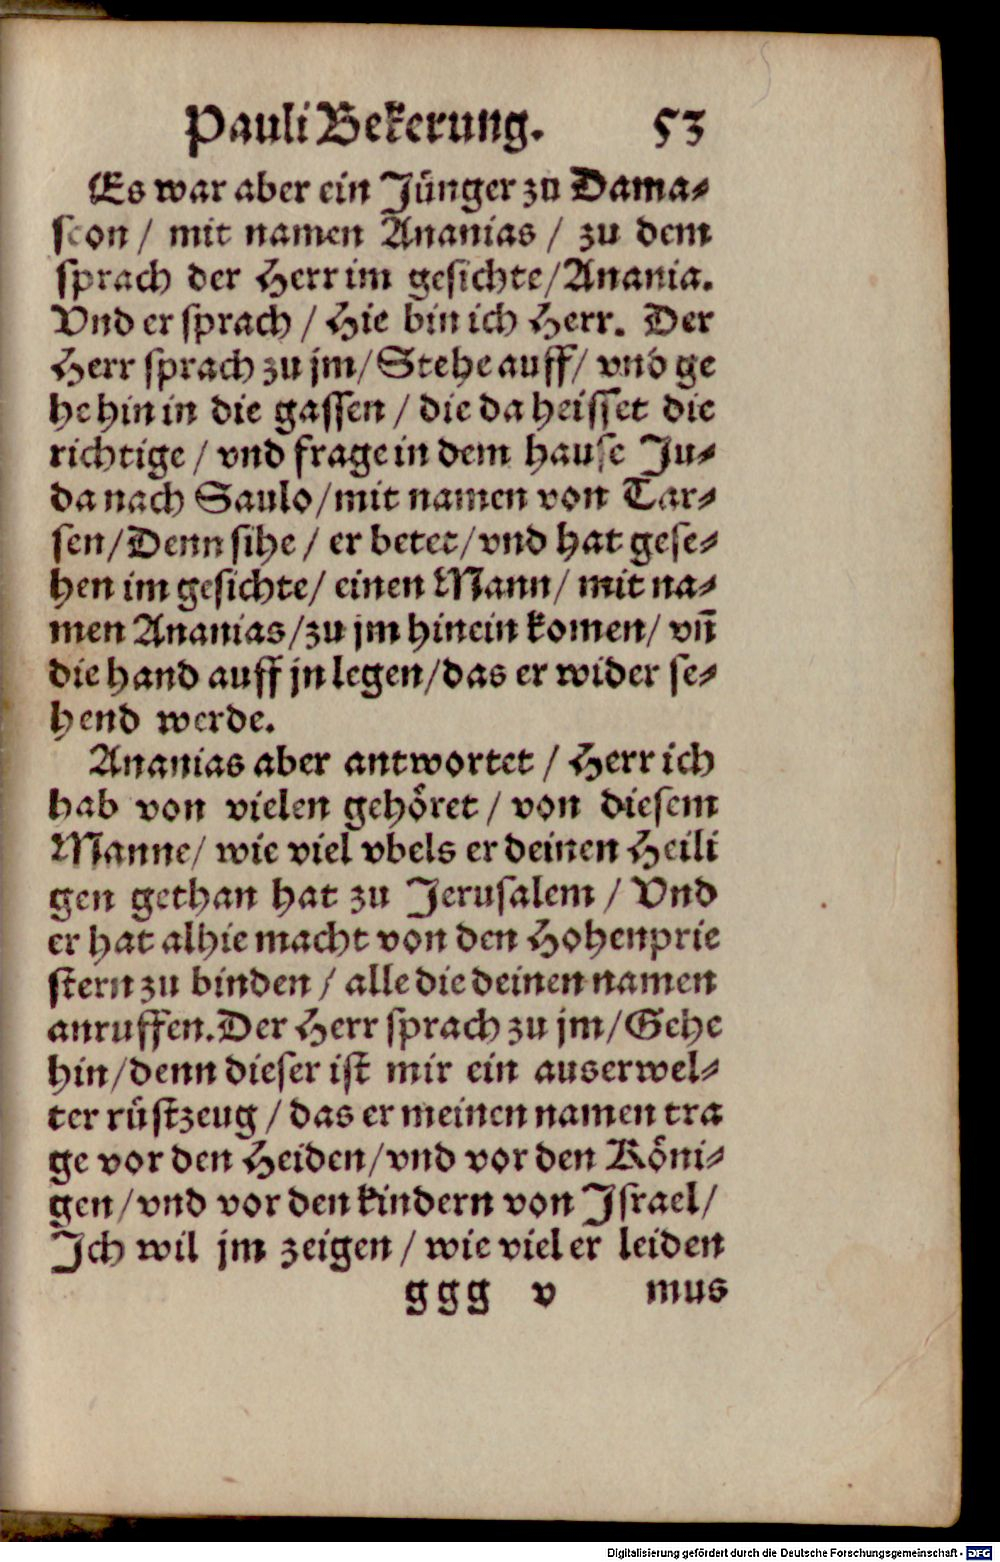 Pauli Bekerung. 53
Es war aber ein Jünger zu Dama-
scon / mit namen Ananias / zu dem
sprach der Herr im gesichte/Anania.
Vnd er sprach / Hie bin ich Herr. Der
Herr sprach zu jm/ Stehe auff/ vnd ge
he hin in die gassen / die da heisset die
richtige / vnd frage in dem hause Ju-
da nach Saulo/mit namen von Tar-
sen/Denn sihe / er betet/vnd hat gese-
hen im gesichte/ einen Mann/ mit na-
men Ananias/zu jm hinein komen/ vñ
die hand auff jn legen/das er wider se-
hend werde.
Ananias aber antwortet / Herr ich
hab von vielen gehöret / von diesem
Manne/ wie viel vbels er deinen Heili
gen gethan hat zu Jerusalem / Vnd
er hat alhie macht von den Hohenprie
stern zu binden / alle die deinen namen
anruffen. Der Herr sprach zu jm/Gehe
hin/denn dieser ist mir ein auserwel-
ter rüstzeug / das er meinen namen tra
ge vor den Heiden/vnd vor den Köni-
gen/vnd vor den kindern von Jsrael/
Jch wil jm zeigen / wie viel er leiden
ggg v mus
Digitalisierung gefördert durch die Deutsche Forschungsgemeinschaft - DFG